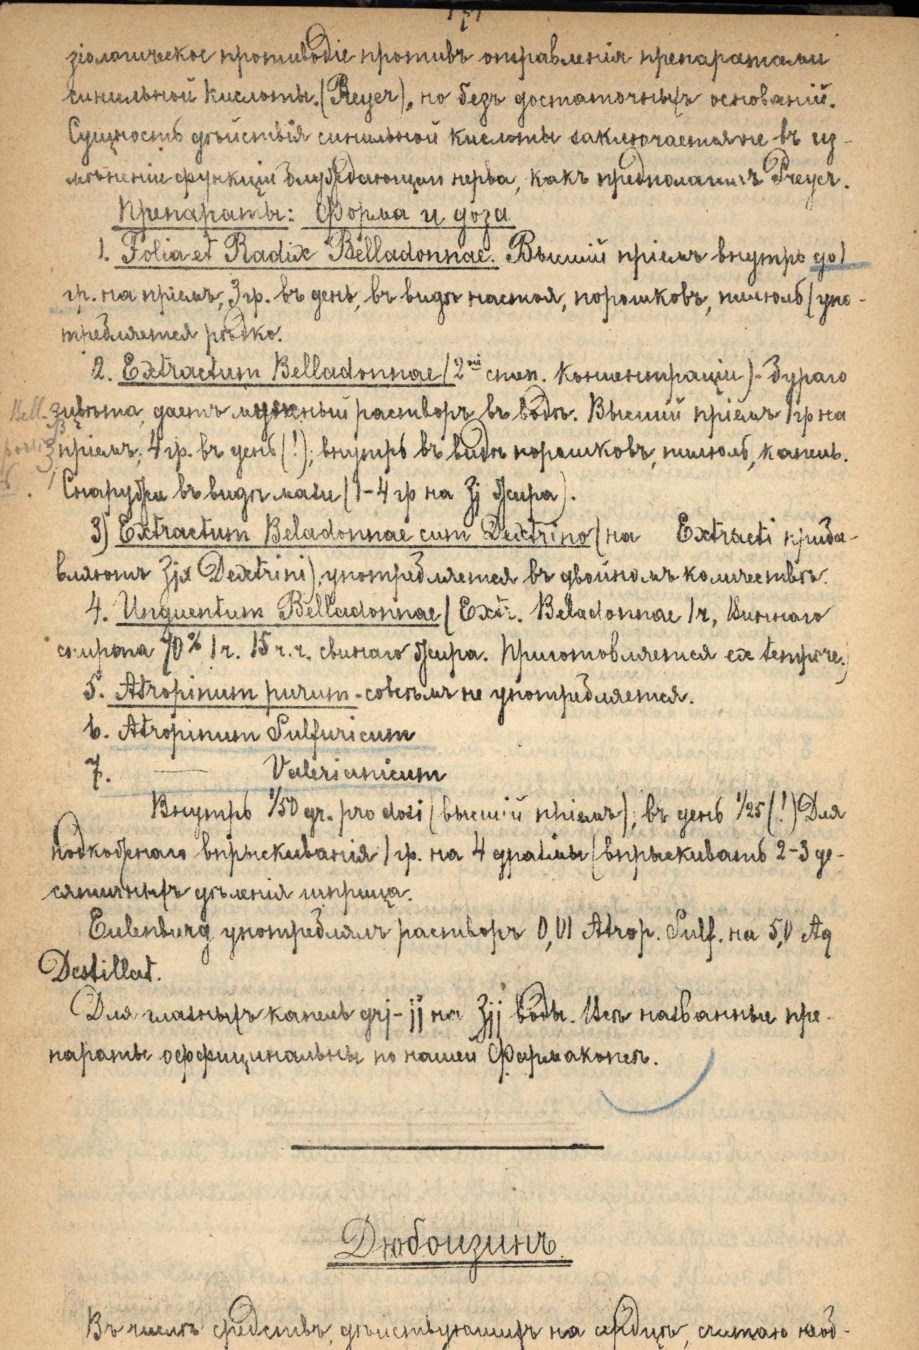 зіологическое противоядіе противъ отравленія препаратами
синильной кислоты (Preyer), но безъ достаточныхъ основаній.
Сущность дѣйствія синильной кислоты заключается не въ из-
мѣненіи функціи блуждающаго нерва, какъ предполагалъ Preyer.
Препараты: Форма и доза
1. Folia et Radix Belladonnae. Высшій пріемъ внутрь до 1
гр. на пріемъ, 3 гр. въ день, въ видѣ настоя, порошковъ, пилюль (упо-
требляется рѣдко.
2. Extractum Belladonnae (2ой степ. концентраціи) - бураго
цвѣта, даетъ мутный растворъ въ водѣ. Высшій пріемъ 1 гр на
пріемъ, 4 гр. въ день (!); внутрь въ видѣ порошковъ, пилюль, капель.
Снаружи въ видѣ мази (1-4 гр на ʒj жира).
3) Extractum Beladonnae cum Dextrino (на Extracti приба-
вляютъ Dextrini), употребляется въ двойномъ количествѣ.
4. Unguentum Belladonnae (Extr. Beladonnae 1 ч, Виннаго
спирта 70% 1 ч. 15 ч.ч. свинаго жира. Приготовляется ex tempore.)
5. Atropinum purum - совсѣмъ не употребляется.
6. Atropinum Sulfuricum
7. — Valerianicum
Внутрь 1/50 gr. pro dosi (высшій пріемъ); въ день 1/25 (!) Для
подкожнаго впрыскиванія 1 гр. на 4 драхмы (впрыскивать 2-3 де-
сятичныхъ дѣленія шприца.
Eulenburg употреблялъ растворъ 0,01 Atrop. Sulf. на 5,0 Aq
Destillat.
Для глазныхъ капель grj-jj на ʒjj воды. Всѣ названные пре-
параты оффицинальны по нашей Фармакопеѣ.
Дюбоизинъ.
Въ числѣ средствъ, дѣйствующихъ на сердце, считаю необ-